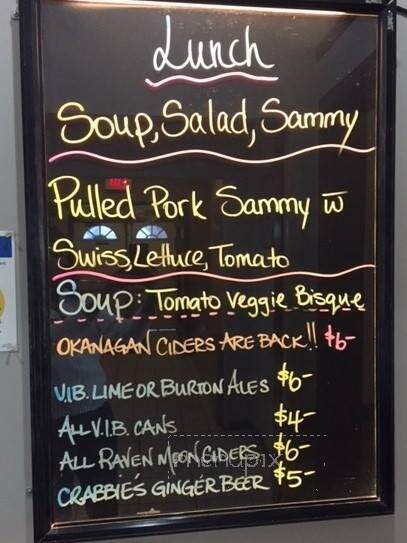 Lunch
Soup, Salad, Sammy
Pulled Pork Sammy w
Swiss, Lettuce, Tomato
Soup: Tomato Veggie Bisque
OKANAGAN CIDERS ARE BACK!! $6-
V.I.B. LIME OR BURTON ALES $6-
ALL V.I.B. CANS $4-
ALL RAVEN MOON CIDERS $6-
CRABBIE'S GINGER BEER $5-
menupix